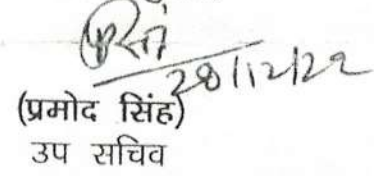 28/12/22
(प्रमोद सिंह)
उप सचिव